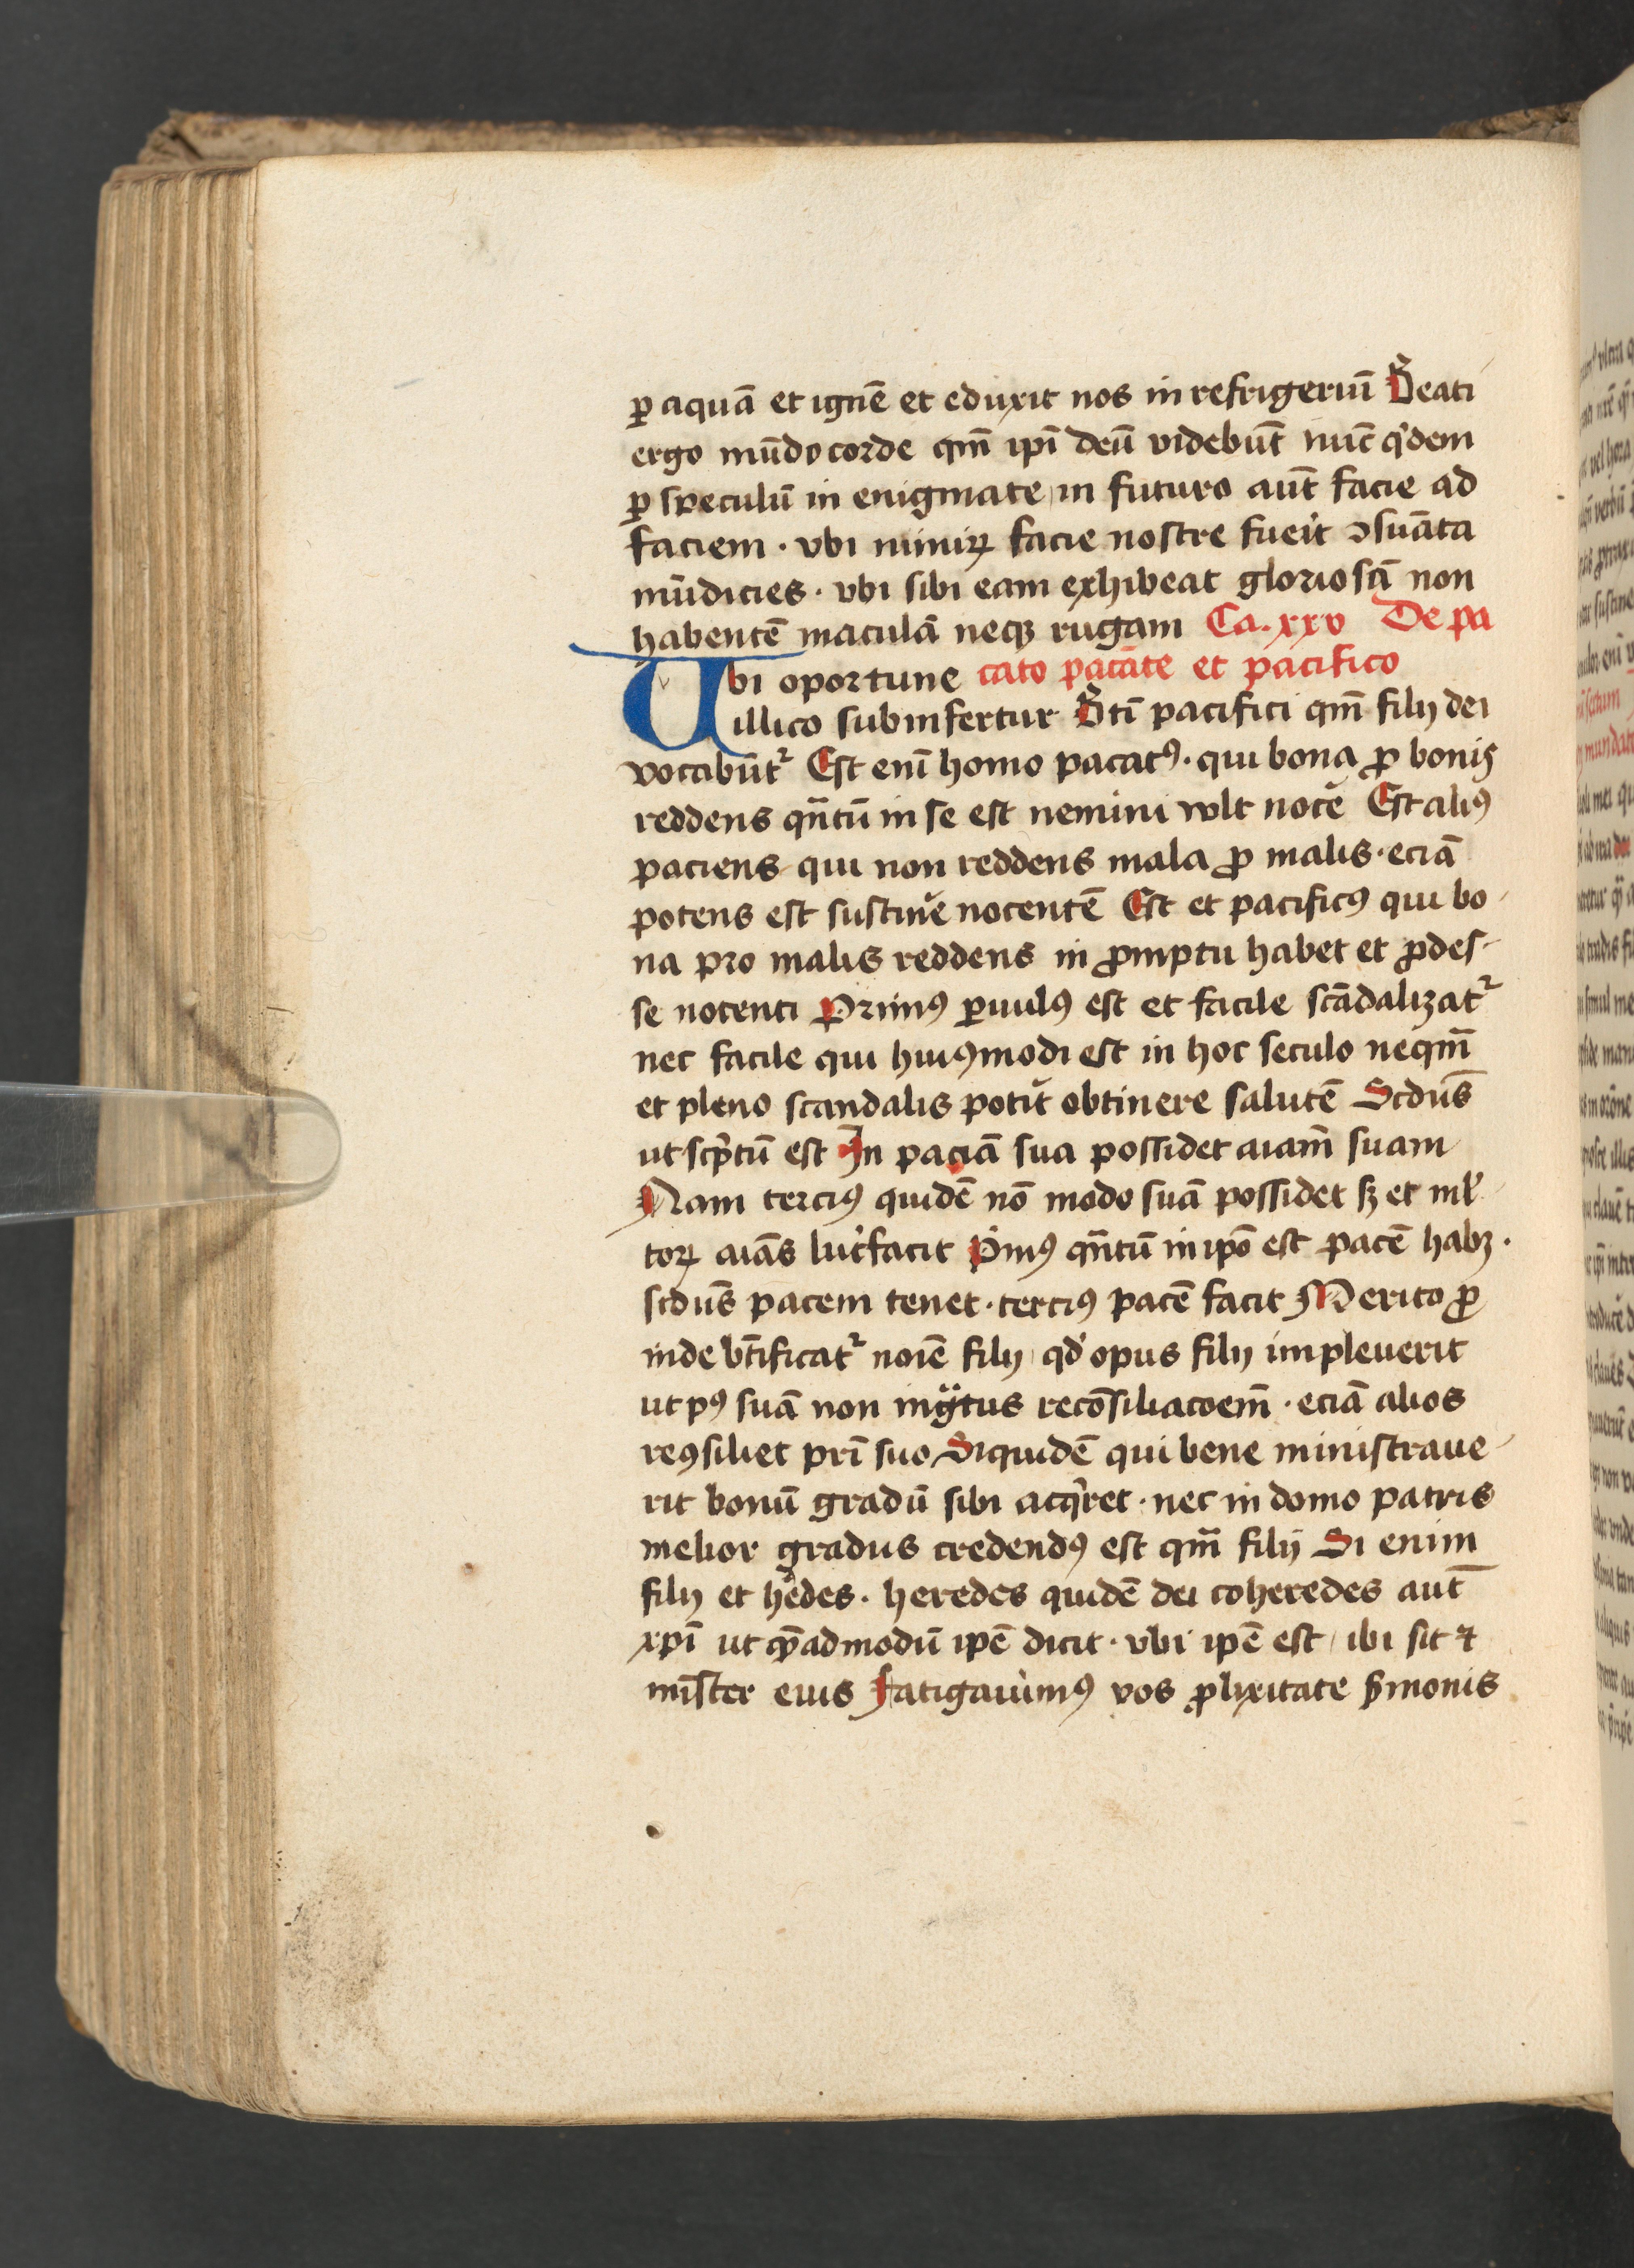 ꝑ aquā et ignē et eduxit nos in refrigeriū Beati
ergo mūdo corde qm̄ ipī deū videbūt nūc qͥdem
ꝑ speculū in enigmate in futuro aūt facie ad
faciem · vbi nimiꝝ facie nostre fueͥt ꝯsuāta
mūdicies · vbi sibi eam exhibeat gloriosā non
habentē maculā neqꝫ rugam Ca. xxv De pa
Ubi oportune cato pacāte et pacifico
illico subinfertur Bt̄i pacifici qm̄ filij dei
vocabūt᷑ Est enī homo pacatꝰ · qui bona ꝓ bonis
reddens qn̄tū in se est nemini wlt nocē Est aliꝰ
paciens qui non reddens mala ꝓ malis · eciā
potens est sustinē nocentē Est et pacificꝰ qui bo
na pro malis reddens in ꝓmptu habet et ꝓdes-
se nocenti Primꝰ ꝑuulꝰ est et facile scādalizat᷑
nec facile qui huiꝰmodi est in hoc seculo neqm̄
et pleno scandalis potit̆ obtinere salutē Scdūs
ut scͥptū est In paciā sua possidet aiam̄ suam
Nam terciꝰ quidē nō modo suā possidet sꝫ et ml̕
toꝝ aiās lucͥfacit Pͥmꝰ qn̄tū in ipō est pacē habꝫ ·
scdūs pacem tenet · terciꝰ pacē facit Merito ꝓ
inde bt̄ificat᷑ noīe filij qd̕ opus filij impleuerit
ut pꝰ suā non ingͣtus recōsiliacoem̄ · eciā alios
reꝯsiliet prī suo Siquidē qui bene ministraue
rit bonū gradū sibi acqͥret · nec in domo patris
melior gradus credendꝰ est qm̄ filij Si enim
filij et hēdes · heredes quidē dei coheredes aut̄
xpī ut qē̄admodū ipē dicit · vbi ipē est ibi sit ⁊
mīster eius Fatigauimꝰ vos ꝓlixitate ẜmonis